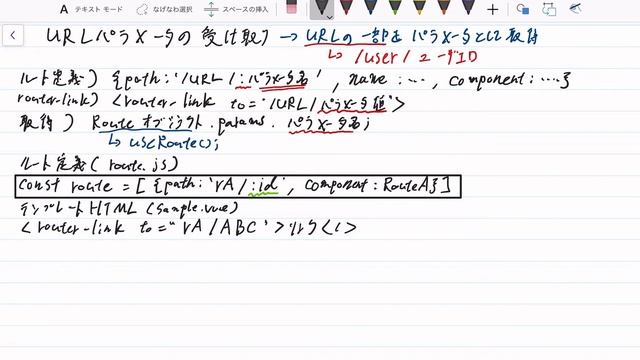 A テキスト モード なげなわ選択 スペースの挿入
URLパラメータの受け取り → URLの一部をパラメータとして取得
↳ /user/ユーザID
ルート定義) {path:'/URL/:パラメータ名', name:…, component:…}
router-link) <router-link to='/URL/パラメータ値'>
取得) Routeオブジェクト.params.パラメータ名;
↳ useRoute();
ルート定義(route.js)
const route = [{path:'rA/:id', component:RouteA}]
テンプレートHTML(sample.vue)
<router-link to="rA/ABC">リンク</>